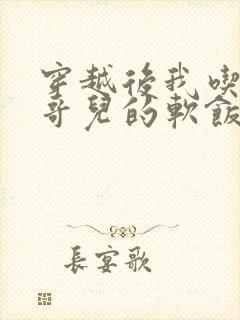 穿越後我喫
哥兒的軟飯
長宴歌